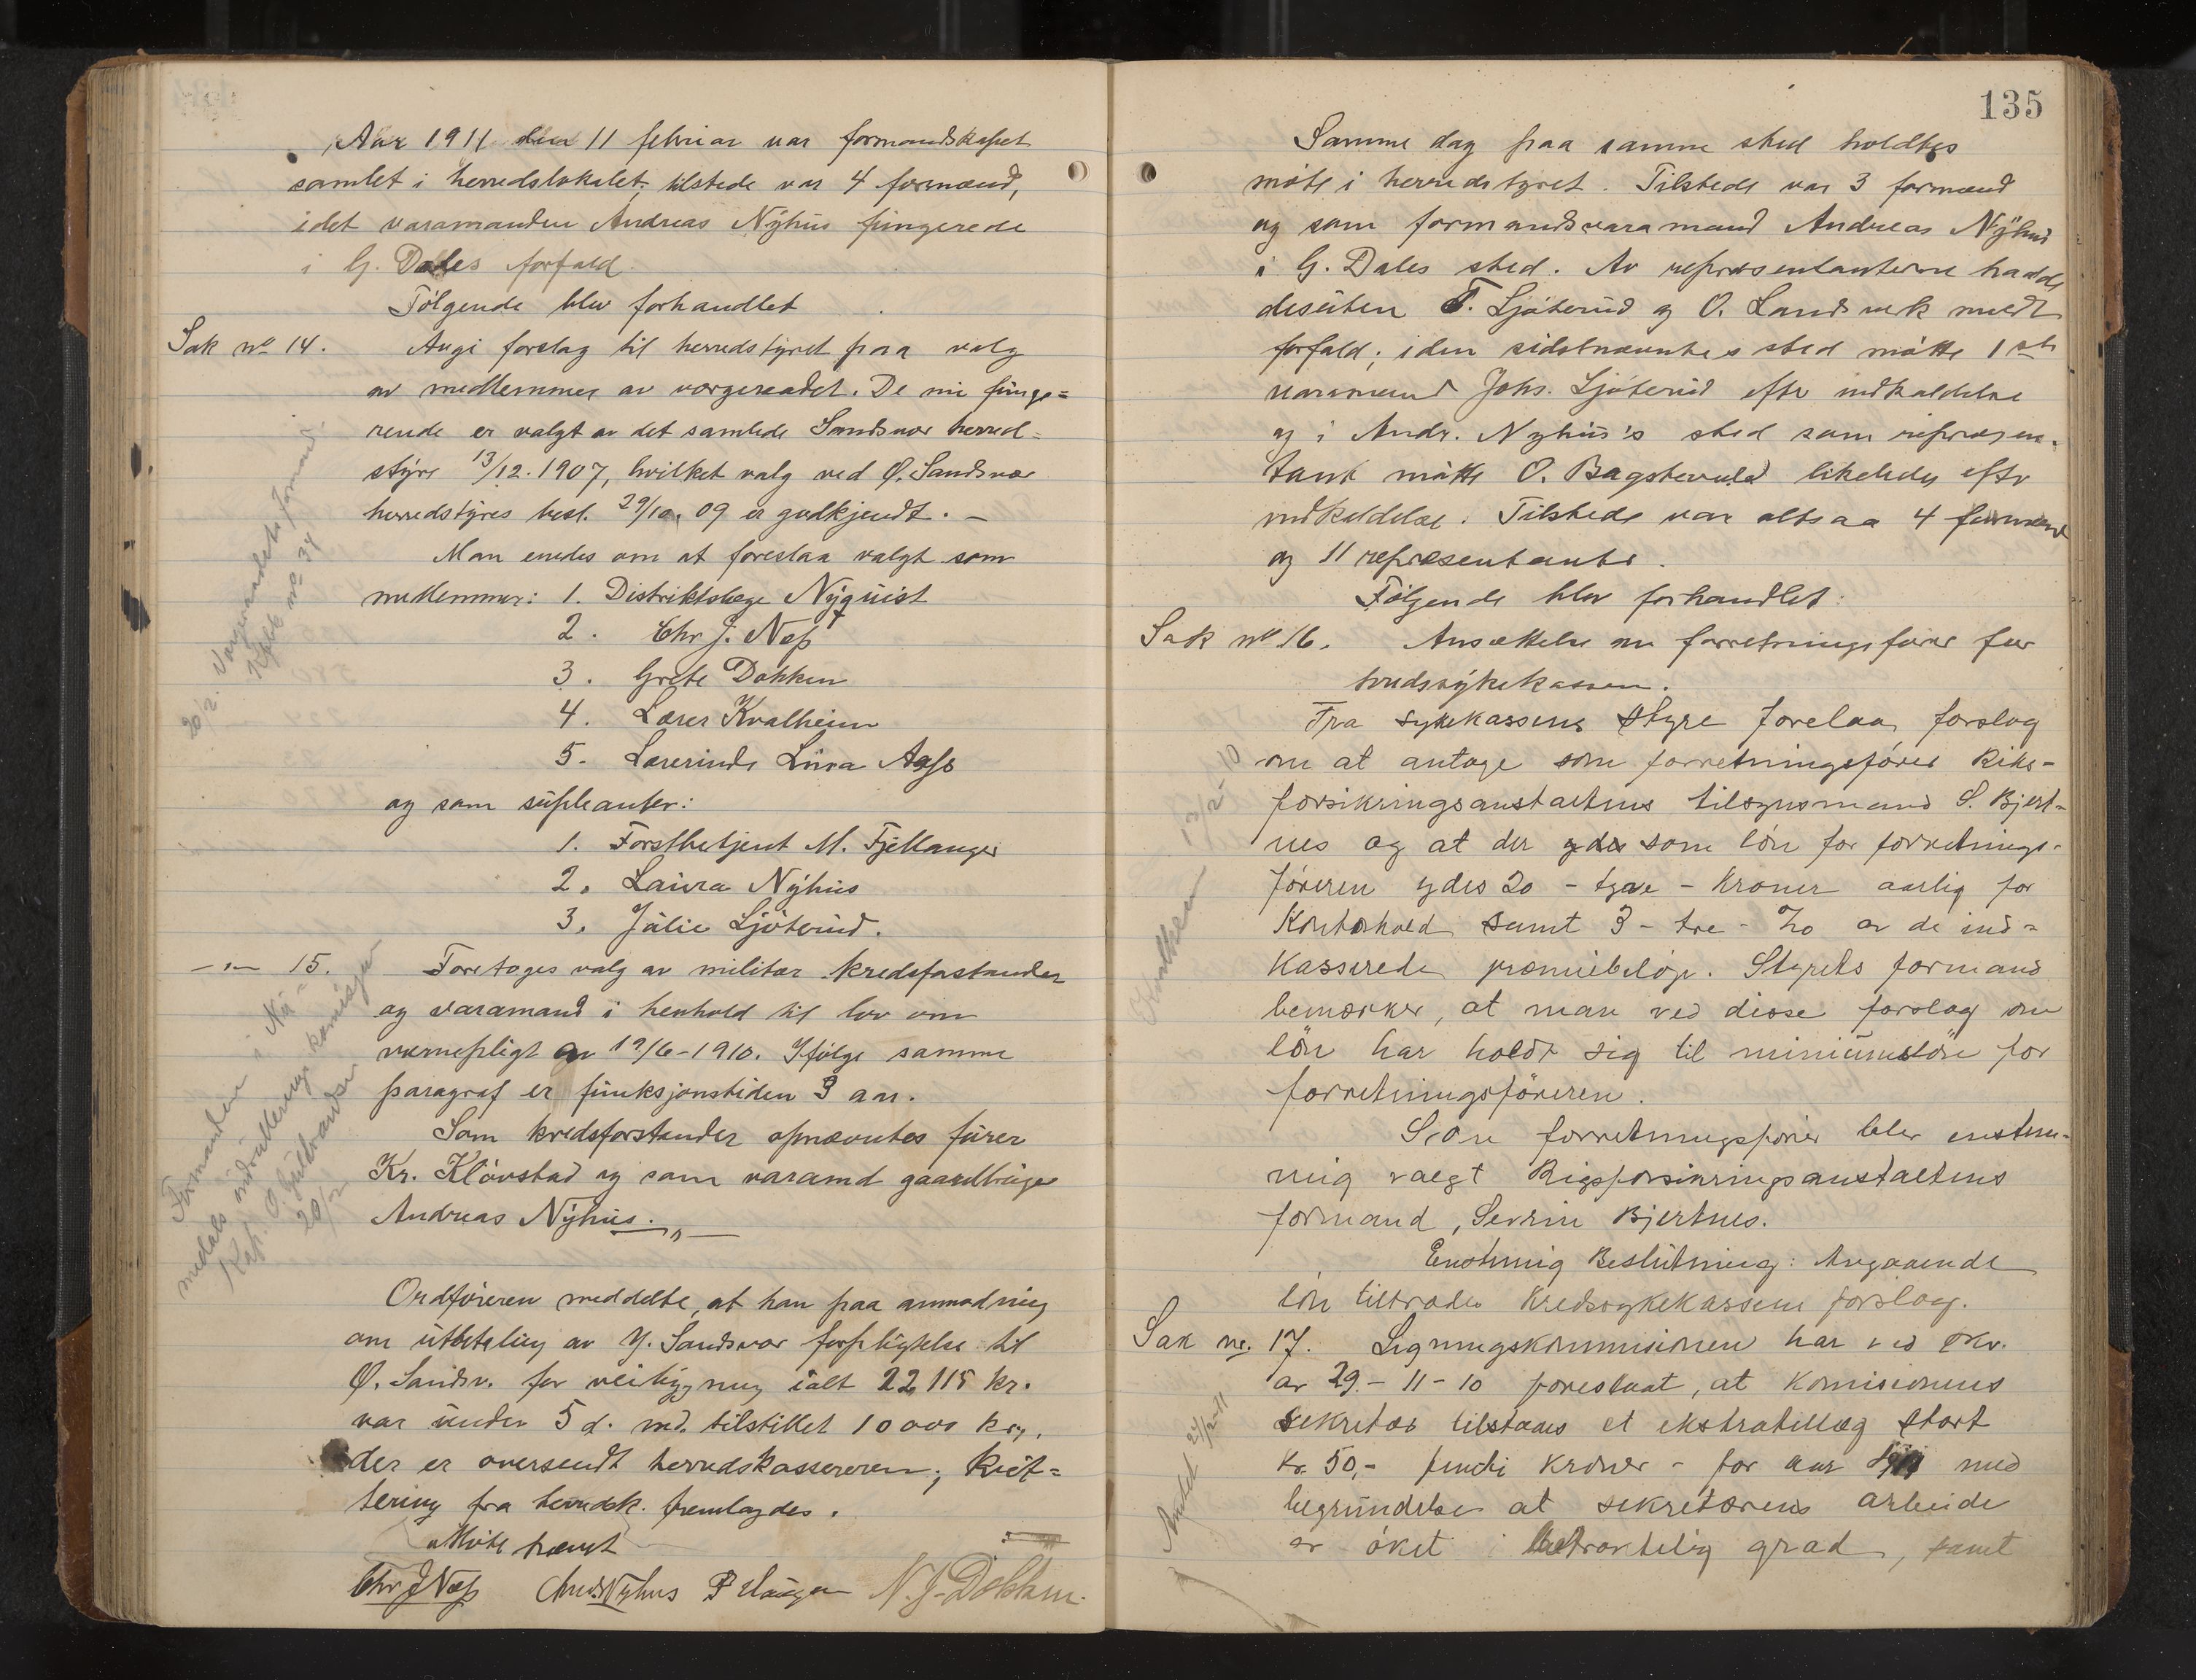 Aar 1911 den 11 februar var formandskapet
samlet i herredslokalet, tilstede var 4 formænd,
idet varamanden Andreas Nyhus fungerede
i G. Dales forfald.
Følgende blev forhandlet
Sak no 14. Angi forslag til herredstyret paa valg
av medlemmer av vørgeraadet. De nu funge=
rende er valgt av det samlede Sandsvær herred=
styre 13/12. 1907, hvilket valg ved Ø. Sandsvær
herredstyres besl. 29/10. 09 er godkjendt. —
Man enedes om at foreslaa valgt som
medlemmer: 1. Distriktslæge Nyquist
2. Chr J. Næss
3. Grete Dokken
4. Lærer Kvalheim
5. Lærerinde Aass
og som supleanter:
1. Forstbetjent M. Fjellanger
2. Laura Nyhus
3. Julie Ljøterud.
—"— 15. Foretoges valg av militær kredsforstander
og varamand i henhold til lov om
vernepligt av 19/6-1910. Ifølge samme
paragraf er funksjonstiden 3 aar.
Som kredsforstander opnævntes furer
Kr. Kløvstad og som varamd gaardbruger
Andreas Nyhus. —"—
Ordføreren meddelte, at han paa anmodning
om utbetaling av Y. Sandsvær forpligtelse til
Ø. Sandsv. for veibygning ialt 22 115 kr.
var under 5 d. md. tilstillet 10 000 kr.,
der er oversendt herredskassereren; kvit=
tering fra herredsk. fremlagdes.
Møte hævet
Chr J Næss Andr. Nyhus P Haugen N. J. Dokken.
20/2. Vørgeraadets formand
Kopib no 34
Formanden i Nu=
medals indrulleringskomisjon
Kap. O Gulbrandsen
20/2
135
Samme dag paa samme sted holdtes
møte i herredstyret. Tilstede var 3 formænd
og som formandsvaramand Andreas Nyhus
i G. Dales sted. Av repræsentanterne hadde
desuten T. Ljøterud og O. Landsverk meldt
forfald; i den sidstnævntes sted møtte 1ste
varamand Johs. Ljøterud efter indkaldelse
og i Andr. Nyhus's sted som repræsen=
tant møtte O. Bagstevold likeledes efter
indkaldelse. Tilstede var altsaa 4 formænd
og 11 repræsentanter.
Følgende blev forhandlet:
Sak no 16. Ansættelse av forretningsfører for
kredssykekassen.
Fra sykekassens styre forelaa forslag
om at antage som forretningsfører Riks-
forsikringsanstaltens tilsynsmand S. Bjert=
nes og at der ydes som løn for forretnings-
føreren ydes 20 - tyve - kroner aarlig for
Kontorhold samt 3 - tre - % av de ind=
kasserede præmiebeløp. Styrets formand
bemærker, at man ved disse forslag om
løn har holdt sig til minimumsløn for
forretningsføreren.
Som forretningsfører blev enstem=
mig valgt Rigsforsikringsanstaltens
formand, Severin Bjertnes.
Enstemig Beslutning: Angaaende
løn tiltrædes Kredssykekassens forslag.
Sak nr. 17. Ligningskommisionen har ved skr.
av 29.-11-10 foreslaat, at Komisionens
sekretær tilstaaes et ekstratillæg stort
kr. 50,- femti kroner - for aar med
begrundelse at sekretærens arbeide
er øket i betraktelig grad, samt
13/2-10
Amtet 27/2-11